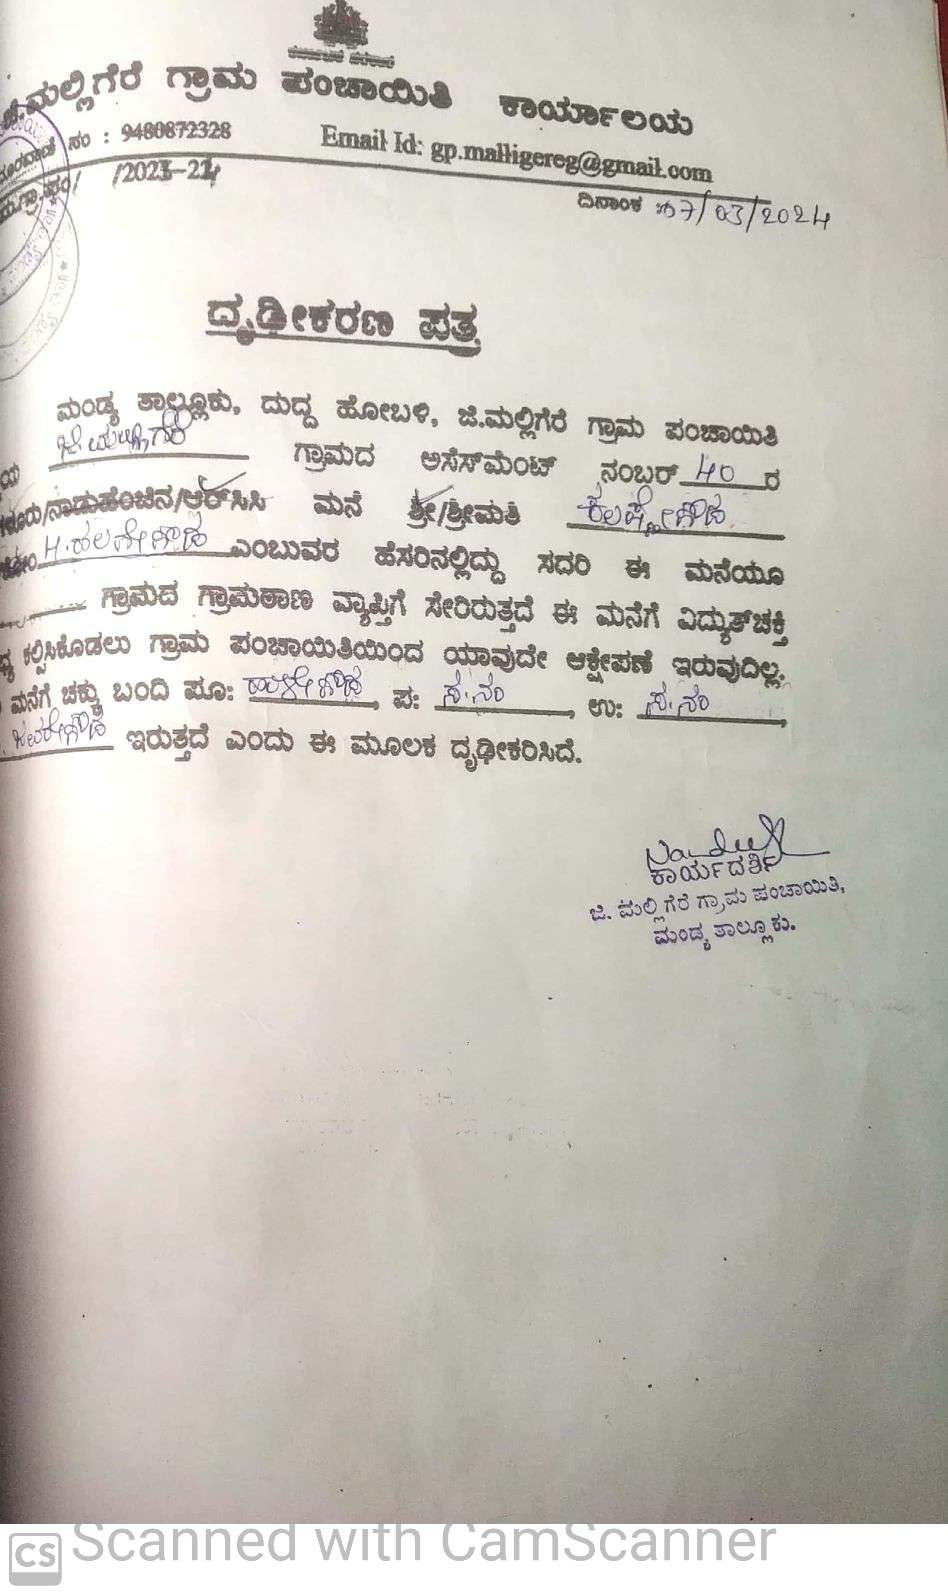 ಜಿ.ಮಲ್ಲಿಗೆರೆ ಗ್ರಾಮ ಪಂಚಾಯಿತಿ ಕಾರ್ಯಾಲಯ
ನಂ : 9480872328 Email Id: gp.malligereg@gmail.com
ದಿನಾಂಕ 07/03/2024
ದೃಢೀಕರಣ ಪತ್ರ
ಮಂಡ್ಯ ತಾಲ್ಲೂಕು, ದುದ್ದ ಹೋಬಳಿ, ಜಿ.ಮಲ್ಲಿಗೆರೆ ಗ್ರಾಮ ಪಂಚಾಯಿತಿ
ಜಿ.ಮಲ್ಲಿಗೆರೆ ಗ್ರಾಮದ ಅಸೆಸ್‌ಮೆಂಟ್ ನಂಬರ್ 40 ರ
/ನಾಡುಹೆಂಚಿನ/ಆರ್‌ಸಿಸಿ ಮನೆ ಶ್ರೀ/ಶ್ರೀಮತಿ
ಎಂಬುವರ ಹೆಸರಿನಲ್ಲಿದ್ದು ಸದರಿ ಈ ಮನೆಯೂ
ಗ್ರಾಮದ ಗ್ರಾಮಠಾಣ ವ್ಯಾಪ್ತಿಗೆ ಸೇರಿರುತ್ತದೆ ಈ ಮನೆಗೆ ವಿದ್ಯುತ್‌ಚಕ್ತಿ
ಕಲ್ಪಿಸಿಕೊಡಲು ಗ್ರಾಮ ಪಂಚಾಯಿತಿಯಿಂದ ಯಾವುದೇ ಆಕ್ಷೇಪಣೆ ಇರುವುದಿಲ್ಲ.
ಮನೆಗೆ ಚಕ್ಕು ಬಂದಿ ಪೂ: , ಪ: ಸ.ನಂ , ಉ: ಸ.ನಂ ,
ಇರುತ್ತದೆ ಎಂದು ಈ ಮೂಲಕ ದೃಢೀಕರಿಸಿದೆ.
ಕಾರ್ಯದರ್ಶಿ
ಜಿ. ಮಲ್ಲಿಗೆರೆ ಗ್ರಾಮ ಪಂಚಾಯಿತಿ,
ಮಂಡ್ಯ ತಾಲ್ಲೂಕು.
CS Scanned with CamScanner